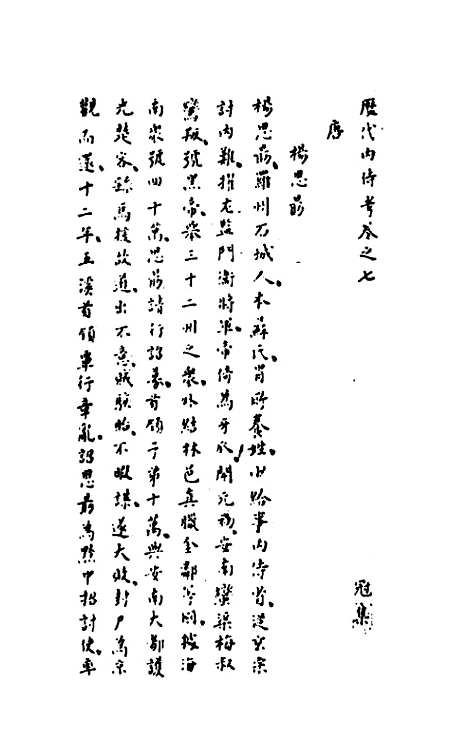 歷代內侍考卷之七
冠集
唐
楊思勗
楊思勗。羅州石城人。本蘇氏。冒所養姓。少給事內侍省。從玄宗
討內難。擢左監門衛將軍。帝倚為爪牙。開元初。安南蠻渠梅叔
鸞叛。號黑帝。舉三十二州之眾。外結林邑真臘金鄰等國。據海
南。眾號四十萬。思勗請行。詔募首領子弟十萬。與安南大都護
光楚客。繇馬援故道。出不意。賊駭眙。不暇謀。遂大敗。封尸為京
觀而還。十二年。五溪首領覃行章亂。詔思勗為黔中招討使。率